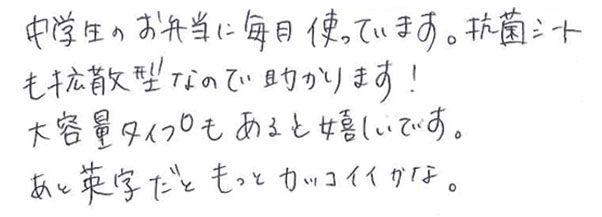 中学生のお弁当に毎日使っています。抗菌シート
も拡散型なので助かります！
大容量タイプもあると嬉しいです。
あと英字だともっとカッコイイかな。